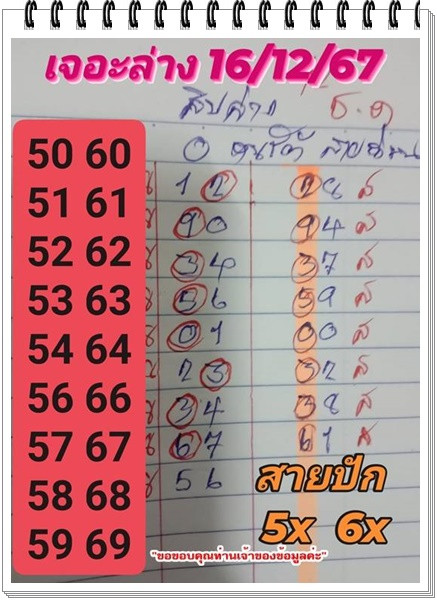 เจอะล่าง 16/12/67
สิบล่าง
50 60
51 61
52 62
53 63
54 64
56 66
57 67
58 68
59 69
1 2
90 94 ส
34 37 ส
56 59 ส
01 00 ส
23 32 ส
34 38 ส
67 61 ส
56
สายปัก
5x 6x
"ขอขอบคุณท่านเจ้าของข้อมูลค่ะ"